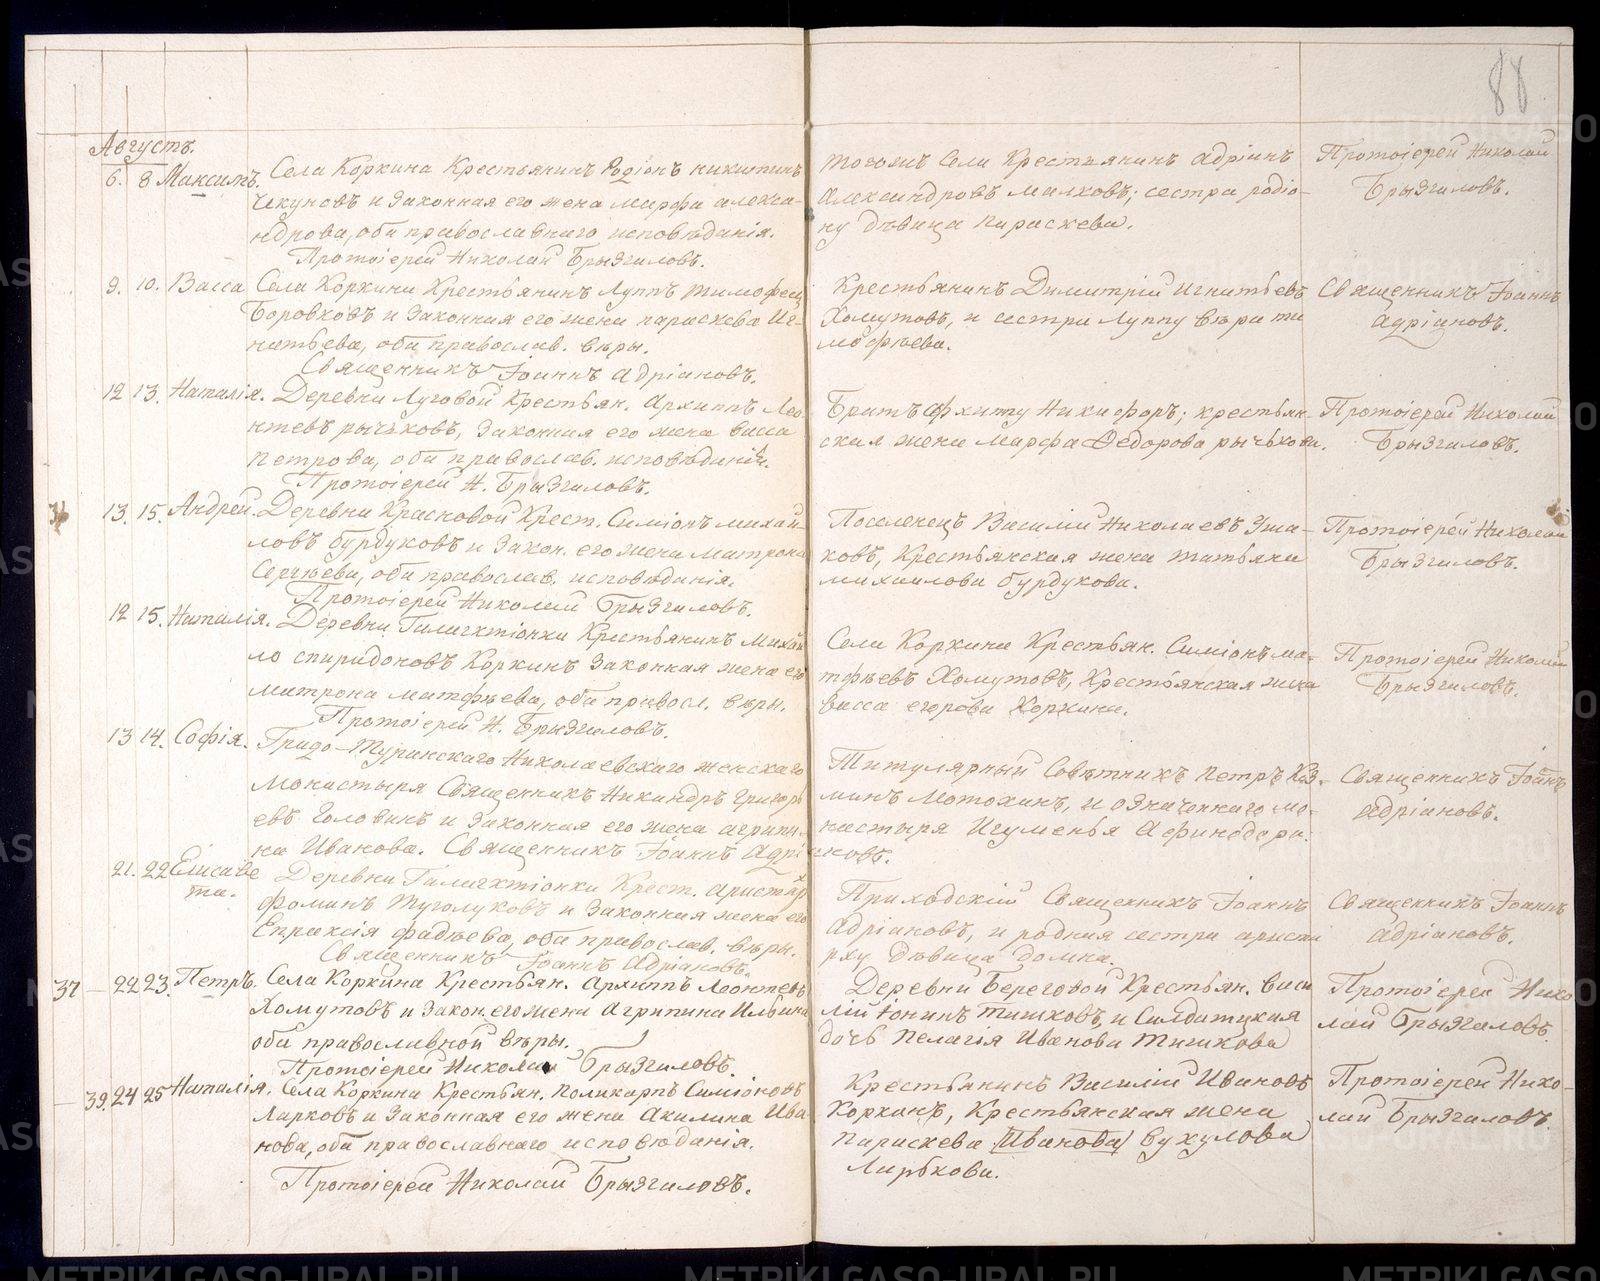 88
Августъ.
6. 8 Максимъ. Села Коркина Крестьянинъ Родіонъ Никитинъ
Чекуновъ и Законная его жена Марфа Алекса-
ндрова, оба православнаго исповѣданія.
Протоіерей Николай Брызгаловъ.
тогожъ Села Крестьянинъ Адріанъ
Александровъ Малковъ; сестра родіо-
ну дѣвица Параскева.
Протоіерей Николай
Брызгаловъ.
9. 10. Васса Села Коркина Крестьянинъ Луппъ Тимофеев
Боровковъ и Законная его жена Параскева Иг-
натьева, оба православ. вѣры.
Священникъ Іоаннъ Адріановъ.
Крестьянинъ Димитрій Игнатьевъ
Хомутовъ, и сестра Луппу Вѣра Ти
мофѣева.
Священникъ Іоаннъ
Адріановъ.
12 13. Наталія. Деревни Луговой Крестьян. Архиппъ Лео-
нтевъ рычьковъ, Законная его жена Васса
Петрова, оба православ. исповѣданія.
Протоіерей Н. Брызгаловъ.
Братъ Никифоръ; крестьян-
ская жена Марфа Федорова рычькова.
Протоіерей Николай
Брызгаловъ.
13. 15. Андрей. Деревни Красновой Крест. Симіонъ Михаи-
ловъ бурдуковъ и Закон. его жена Матрона
Сергѣева, оба православ. исповѣданія.
Протоіерей Николай Брызгаловъ.
Поселенецъ Василій Николаевъ
ковъ, Крестьянская жена Татьяна
Михаилова бурдукова.
Протоіерей Николай
Брызгаловъ.
12 15. Наталія. Деревни Галактіонки Крестьянинъ Михаи
ло спиридоновъ Коркинъ Законная жена его
Матрона Матфѣева, оба правосл. вѣры.
Протоіерей Н. Брызгаловъ.
Села Коркина Крестьян. Симіонъ Ма-
тфѣевъ Хомутовъ, Крестьянская жена
Васса егорова Коркина.
Протоіерей Николай
Брызгаловъ.
13 14. Софія. Градо-Туринскаго Николаевскаго женскаго
монастыря Священникъ Никандръ Григорь
евъ Головинъ и Законная его жена Агрипи-
на Иванова. Священникъ Іоаннъ Адрі
ановъ.
Титулярный Совѣтникъ Петръ Коз-
минъ Мотохинъ, и означеннаго мо-
настыря Игуменья Афинодора.
Священникъ Іоаннъ
Адріановъ.
21. 22 Елисаве
та. Деревни Галактіонки Крест. Аристархъ
Фоминъ Туголуковъ и Законная жена его
Епраксія Фадѣева, оба православ. вѣры.
Священникъ Іоаннъ Адріановъ.
Приходскій Священникъ Іоаннъ
Адріановъ, и родная сестра ариста
рху дѣвица домна.
Священникъ Іоаннъ
Адріановъ.
37 — 22 23. Петръ. Села Коркина Крестьян. Архиппъ Леонтевъ
Хомутовъ и Закон. его жена Агрипина Ильина
оба православной вѣры.
Протоіерей Николай Брызгаловъ.
Деревни Береговой Крестьян. Васи
лій Іонинъ Тишковъ, и Солдатская
дочь Пелагія Иванова Тишкова
Протоіерей Нико
лай Брызгаловъ.
39. 24 25 Наталія. Села Коркина Крестьян. Поликарпъ Симіоновъ
Ларковъ и Законная его жена Акилина Ива
нова, оба православнаго исповѣданія.
Протоіерей Николай Брызгаловъ.
Крестьянинъ Василій Ивановъ
Коркинъ, Крестьянская жена
Параскева (Иванова) Вукулова
Ларькова.
Протоіерей Нико-
лай Брызгаловъ.
METRIKI.GASO-URAL.RU